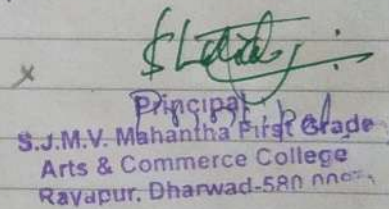 Principal
S.J.M.V. Mahantha First Grade
Arts & Commerce College
Rayapur, Dharwad-580